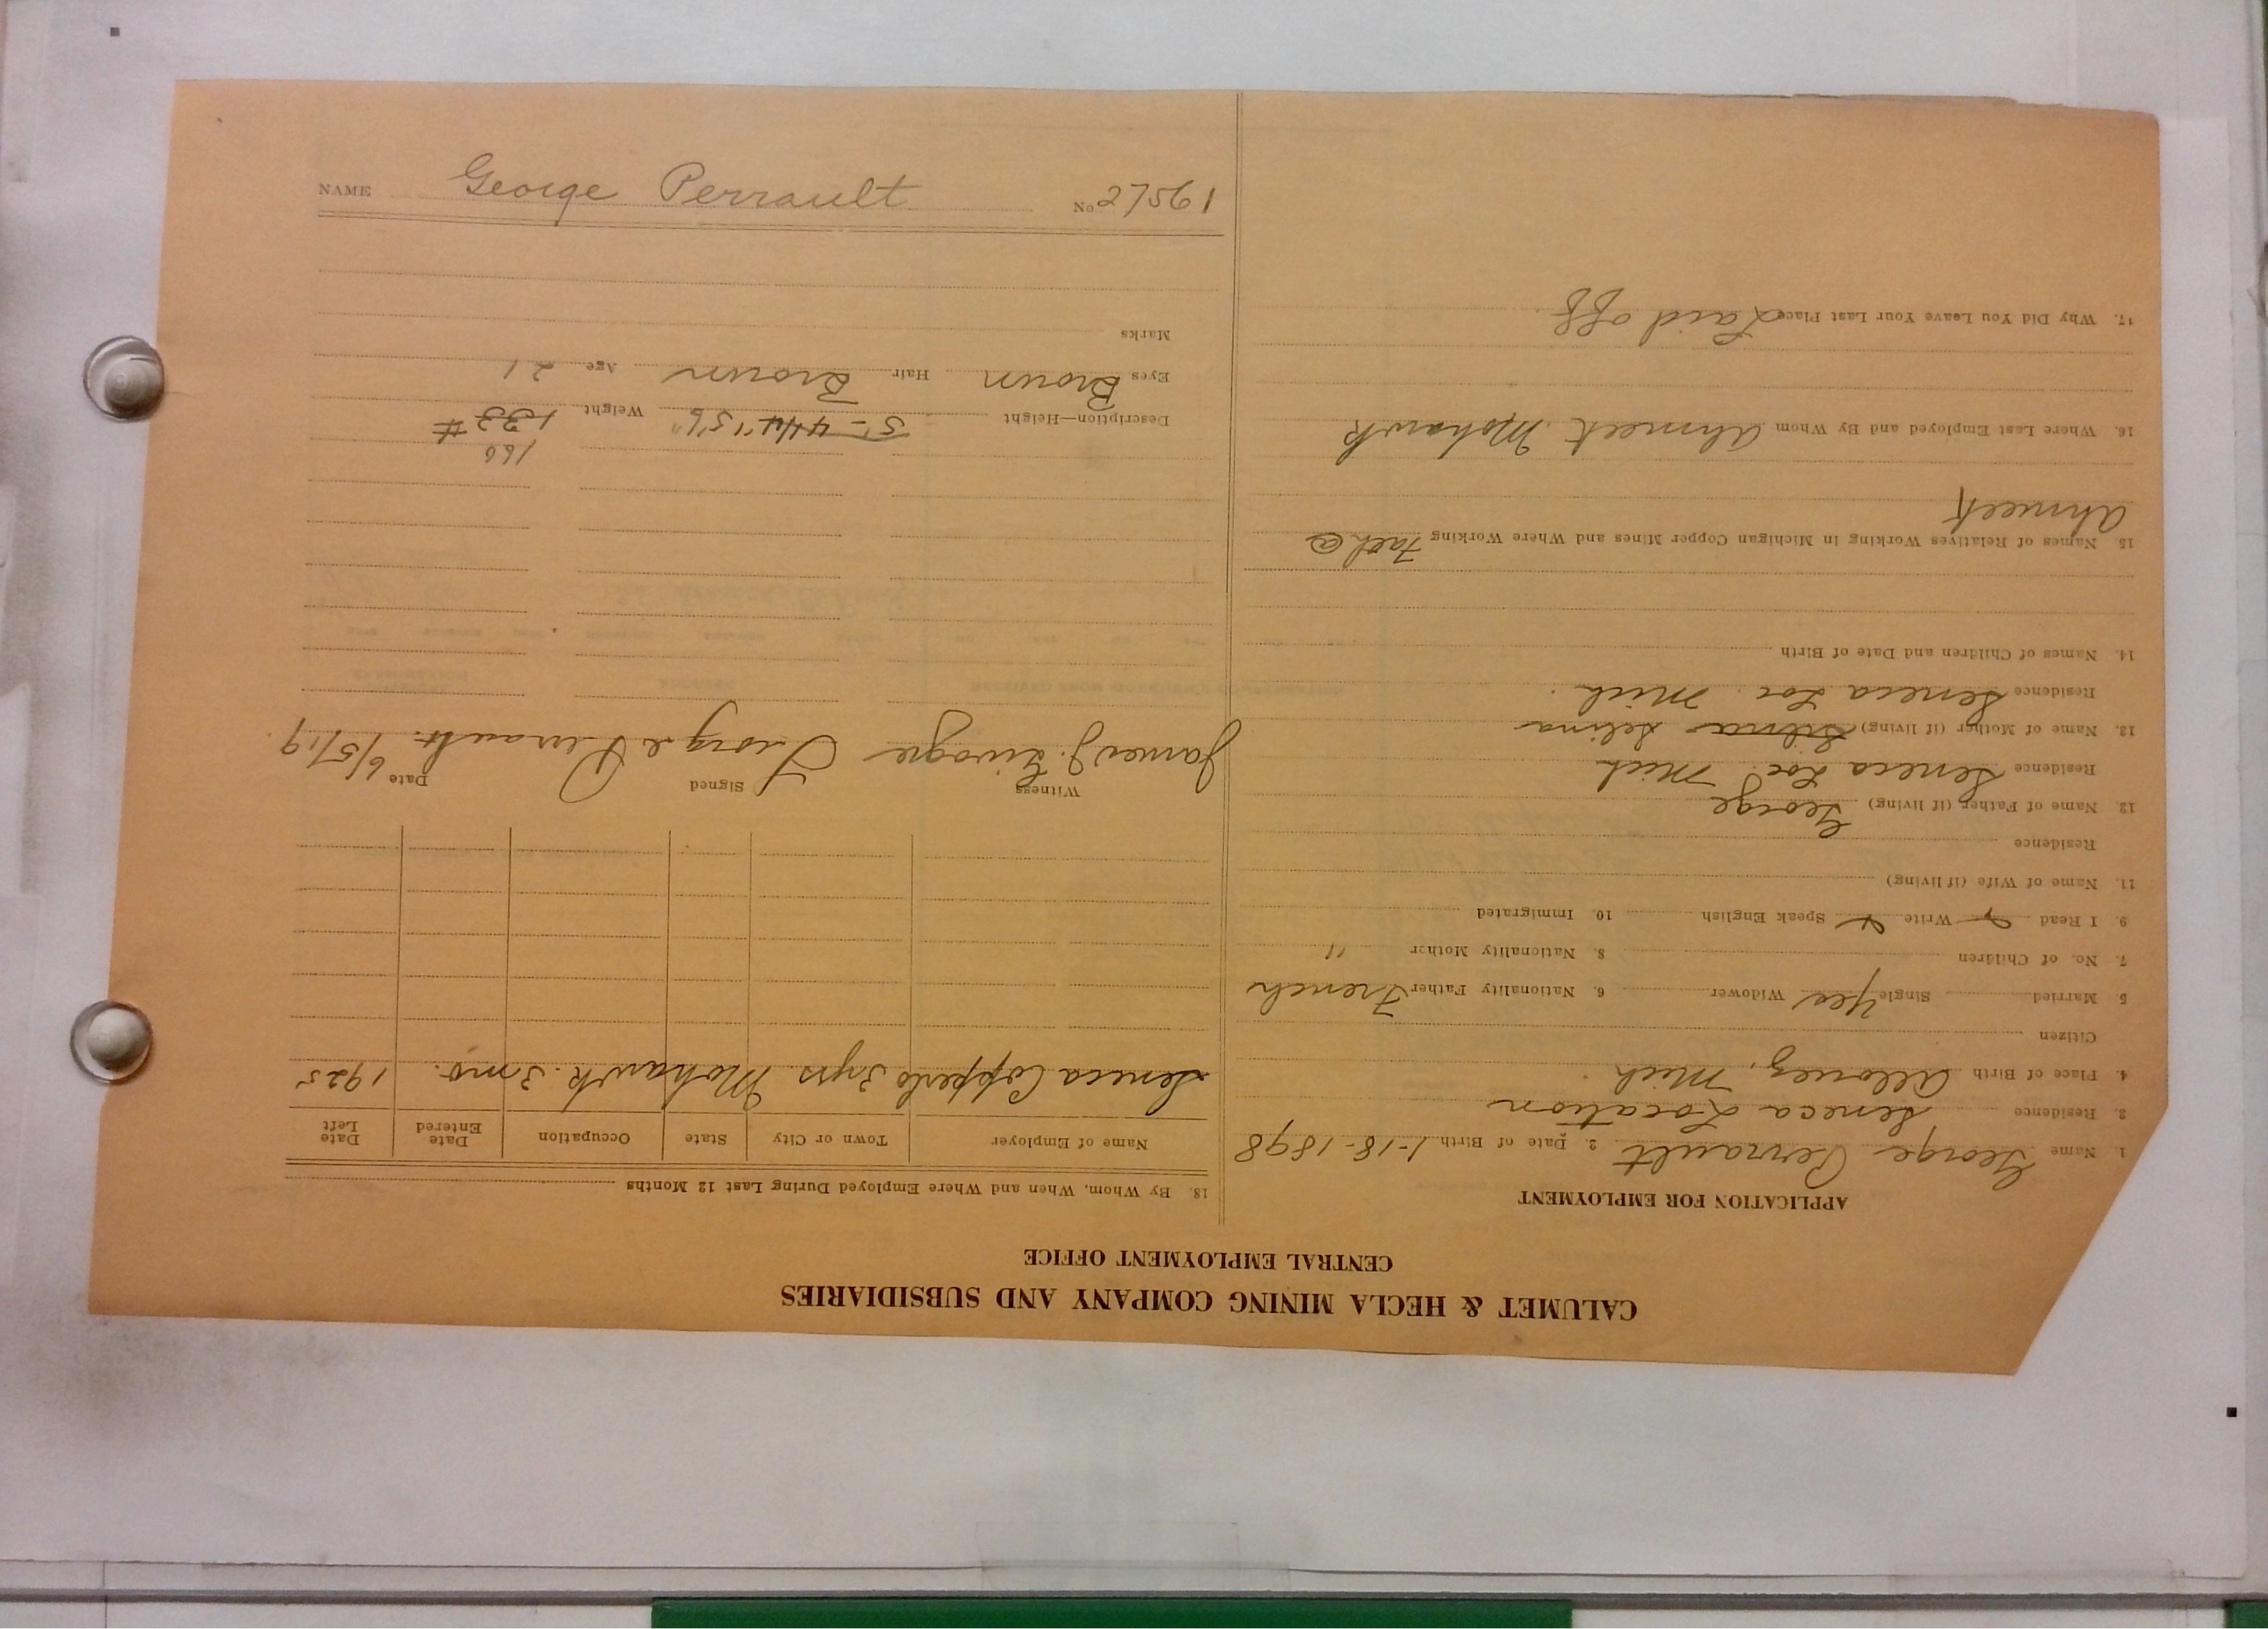 CALUMET & HECLA MINING COMPANY AND SUBSIDIARIES
CENTRAL EMPLOYMENT OFFICE
APPLICATION FOR EMPLOYMENT
1. Name George Perrault 2. Date of Birth 1-18-1898
3. Residence Seneca Location
4. Place of Birth Allouez, Mich.
Citizen
5 Married Single Yes Widower 6. Nationality Father French
7. No. of Children 8. Nationality Mother "
9. I Read Write Speak English 10. Immigrated
11. Name of Wife (if living)
Residence
12. Name of Father (if living) George
Residence Seneca Loc. Mich
13. Name of Mother (if living) Selina
Residence Seneca Loc. Mich.
14. Names of Children and Date of Birth
15. Names of Relatives Working in Michigan Copper Mines and Where Working Fath @
Ahmeek
16. Where Last Employed and By Whom Ahmeek Mohawk
17. Why Did You Leave Your Last Place Laid off
18. By Whom, When and Where Employed During Last 12 Months
Name of Employer Town or City State Occupation Date Entered Date Left
Seneca Copper Co 3 yrs Mohawk. 3 mo. 1925
Witness Signed Date
James J. George Perrault. 6/5/19
160
Description—Height 5'-4 1/4" 5'6" Weight 133 #
Eyes Brown Hair Brown Age 21
Marks
NAME George Perrault No 27561